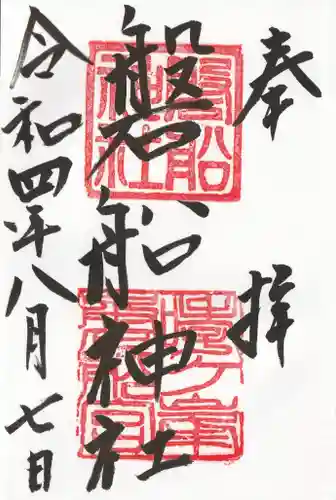 奉拝
磐船神社
令和四年八月七日
磐船神社